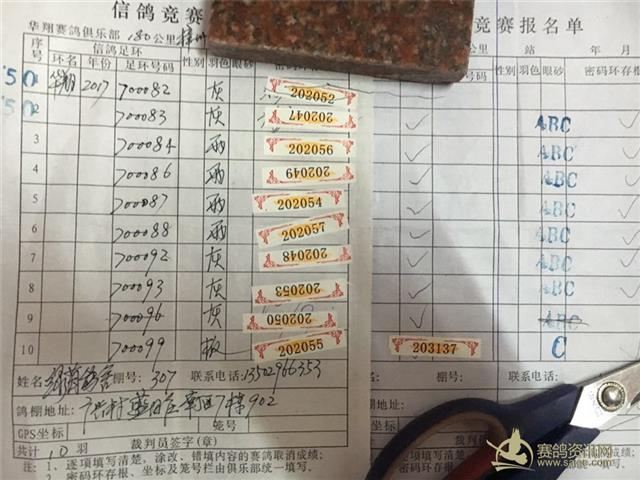 信鸽竞赛 竞赛报名单
华翔赛鸽俱乐部 180公里 公里 站 年 月
序号 信鸽足环 性别 羽色 眼砂 性别 羽色 眼砂 密码环存根
环名 年份 足环号码
50 1 华翔 2017 700082 灰 202052
50 2 700083 灰 202047 ✓ ABC ✓
3 700084 雨 202056 ✓ ABC ✓
4 700086 雨 202049 ✓ ABC ✓
5 700087 雨 202054 ✓ ABC ✓
6 700088 雨 202057 ✓ ABC ✓
7 700092 灰 202048 ✓ ABC ✓
8 700093 灰 202053 ✓ ABC ✓
9 700096 灰 202050 ✓ ABC
10 700099 202055 203137 C
姓名 棚号: 307 联系电话:13502966353
鸽棚地址: 7栋902
GPS坐标 笼号
共计 10 羽 裁判员签字(章)
注: 1、逐项填写清楚,涂改、错填内容的赛鸽取消成绩;
2、密码环存根、坐标及笼号栏由俱乐部统一填写。
赛鸽资讯网
www.saige.com